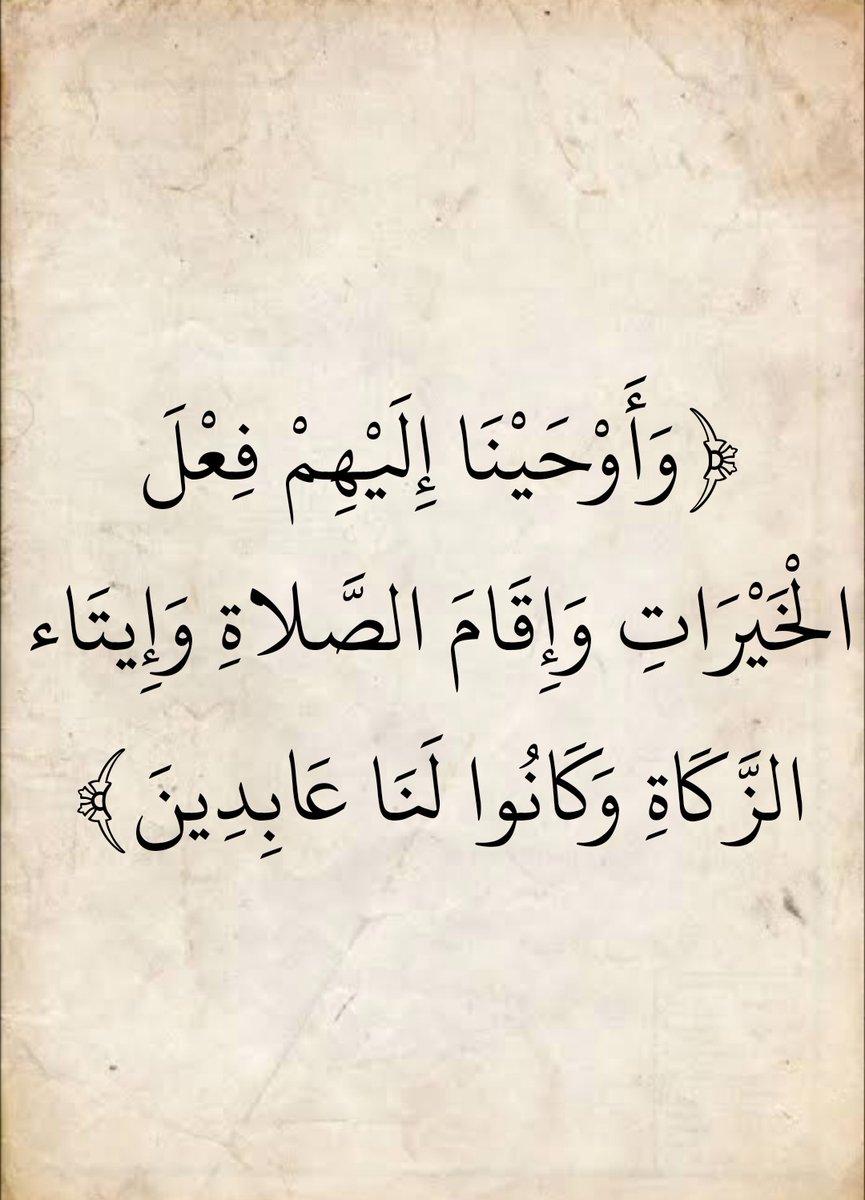 ﴿ وَأَوْحَيْنَا إِلَيْهِمْ فِعْلَ
الْخَيْرَاتِ وَإِقَامَ الصَّلاةِ وَإِيتَاء
الزَّكَاةِ وَكَانُوا لَنَا عَابِدِينَ ﴾